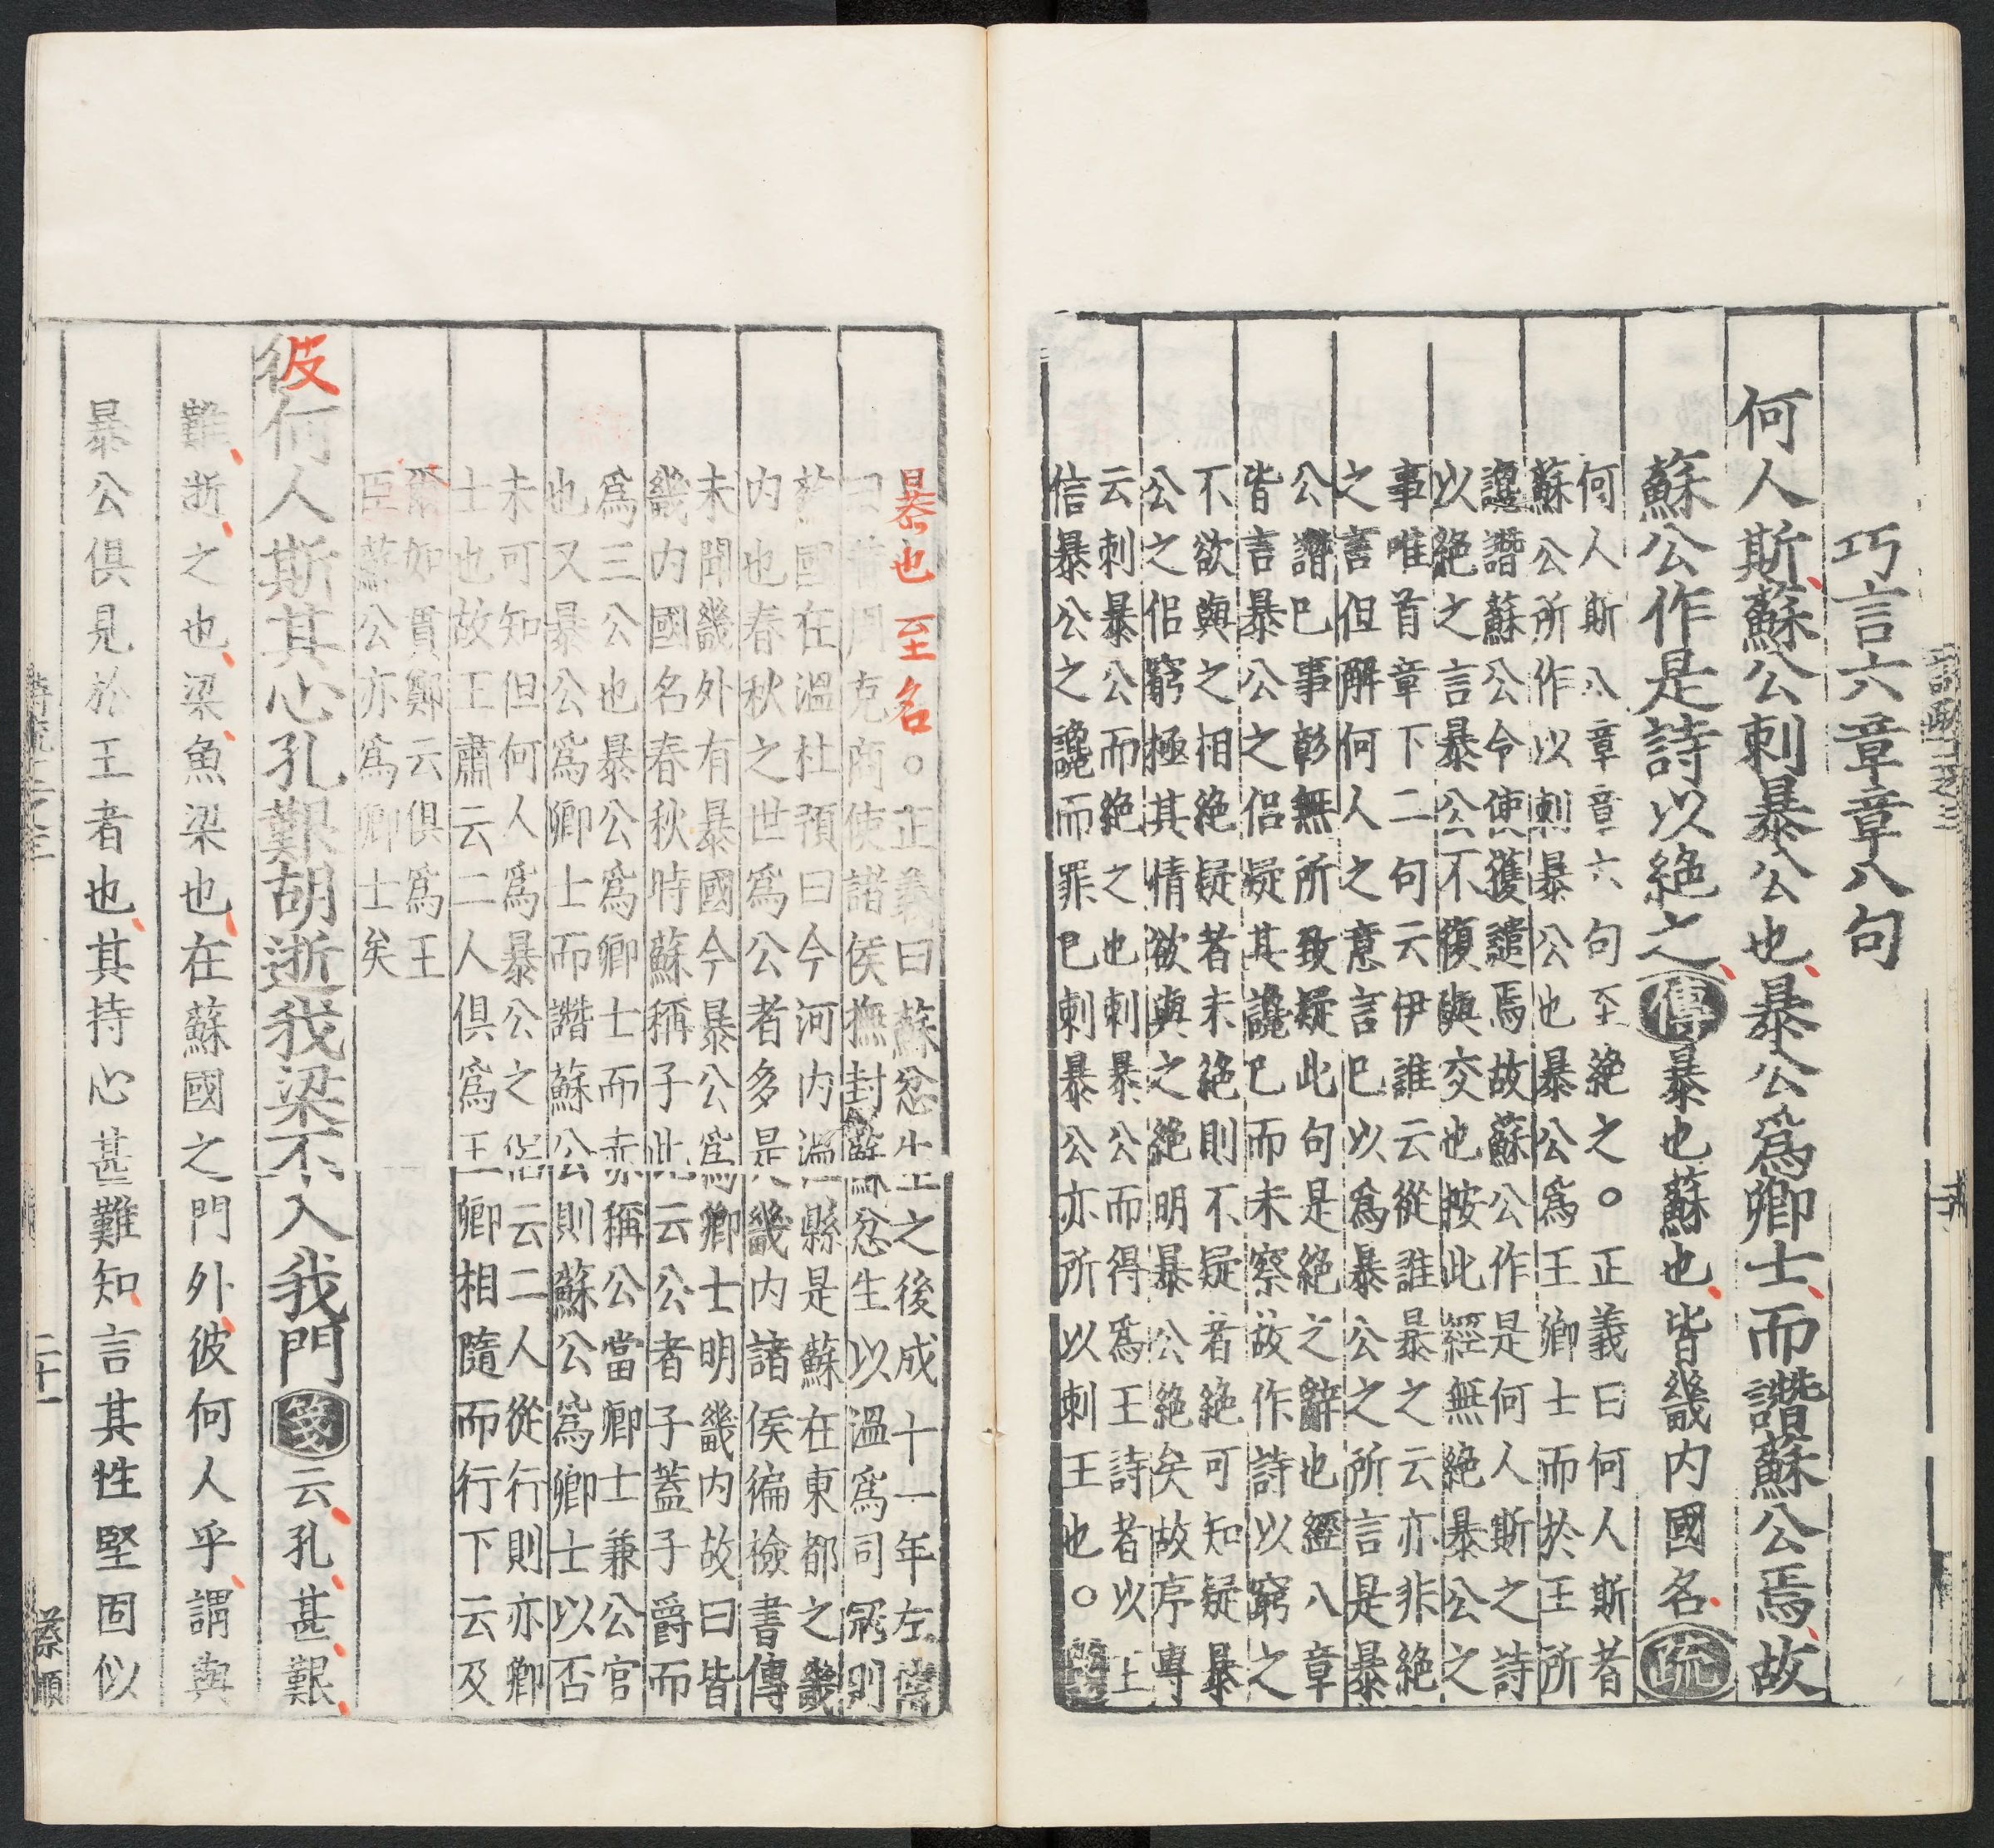 巧言六章章八句
何人斯蘇公刺暴公也暴公爲卿士而譖蘇公焉故
蘇公作是詩以絶之傳暴也蘇也皆畿内國名疏
何人斯八章章六句至絶之○正義曰何人斯者
蘇公所作以刺暴公也暴公爲王卿士而於王所
讒譖蘇公令使獲譴焉故蘇公作是何人斯之詩
以絶之言暴公不復與交也按此經無絶暴公之
事唯首章下二句云伊誰云從誰暴之云亦非絶
之言但解何人之意言巳以爲暴公之所言是暴
公譖巳事彰無所致疑此句是絶之辭也經八章
皆言暴公之侣疑其讒巳而未察故作詩以窮之
不欲與之相絶疑者未絶則不疑者絶可知疑暴
公之侣窮極其情欲與之絶明暴公絶矣故序專
云刺暴公而絶之也刺暴公而得爲王詩者以王
信暴公之讒而罪巳刺暴公亦所以刺王也○
暴也至名○正義曰蘇忿生之後成十一年左傳
曰昔周克商使諸侯撫封蘇忿生以温爲司冦則
蘇國在溫杜預曰今河内溫縣是蘇在東都之畿
内也春秋之世爲公者多是畿内諸侯徧檢書傳
未聞畿外有暴國今暴公爲卿士明畿内故曰皆
畿内國名春秋時蘇稱子此云公者子蓋子爵而
爲三公也暴公爲卿士而亦稱公當卿士兼公官
也又暴公爲卿士而譖蘇公則蘇公爲卿士以否
未可知但何人爲暴公之侣云二人從行則亦卿
士也故王肅云二人俱爲王卿相隨而行下云及
爾如貫鄭云俱爲王
臣蘇公亦爲卿士矣
彼何人斯其心孔艱胡逝我梁不入我門箋云孔甚艱
難逝之也梁魚梁也在蘇國之門外彼何人乎謂與
暴公俱見於王者也其持心甚難知言其性堅固似
詩疏十二之三
二十一
蔡順